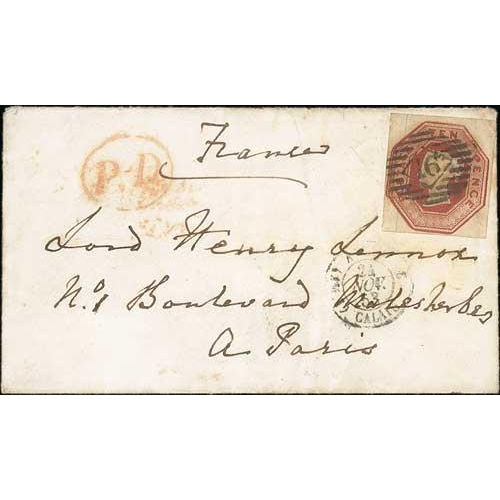 France
P.D
TEN PENCE
Lord Henry Lennox
24
NOV.
53
CALAIS
No 1 Boulevard Malesherbes
A Paris